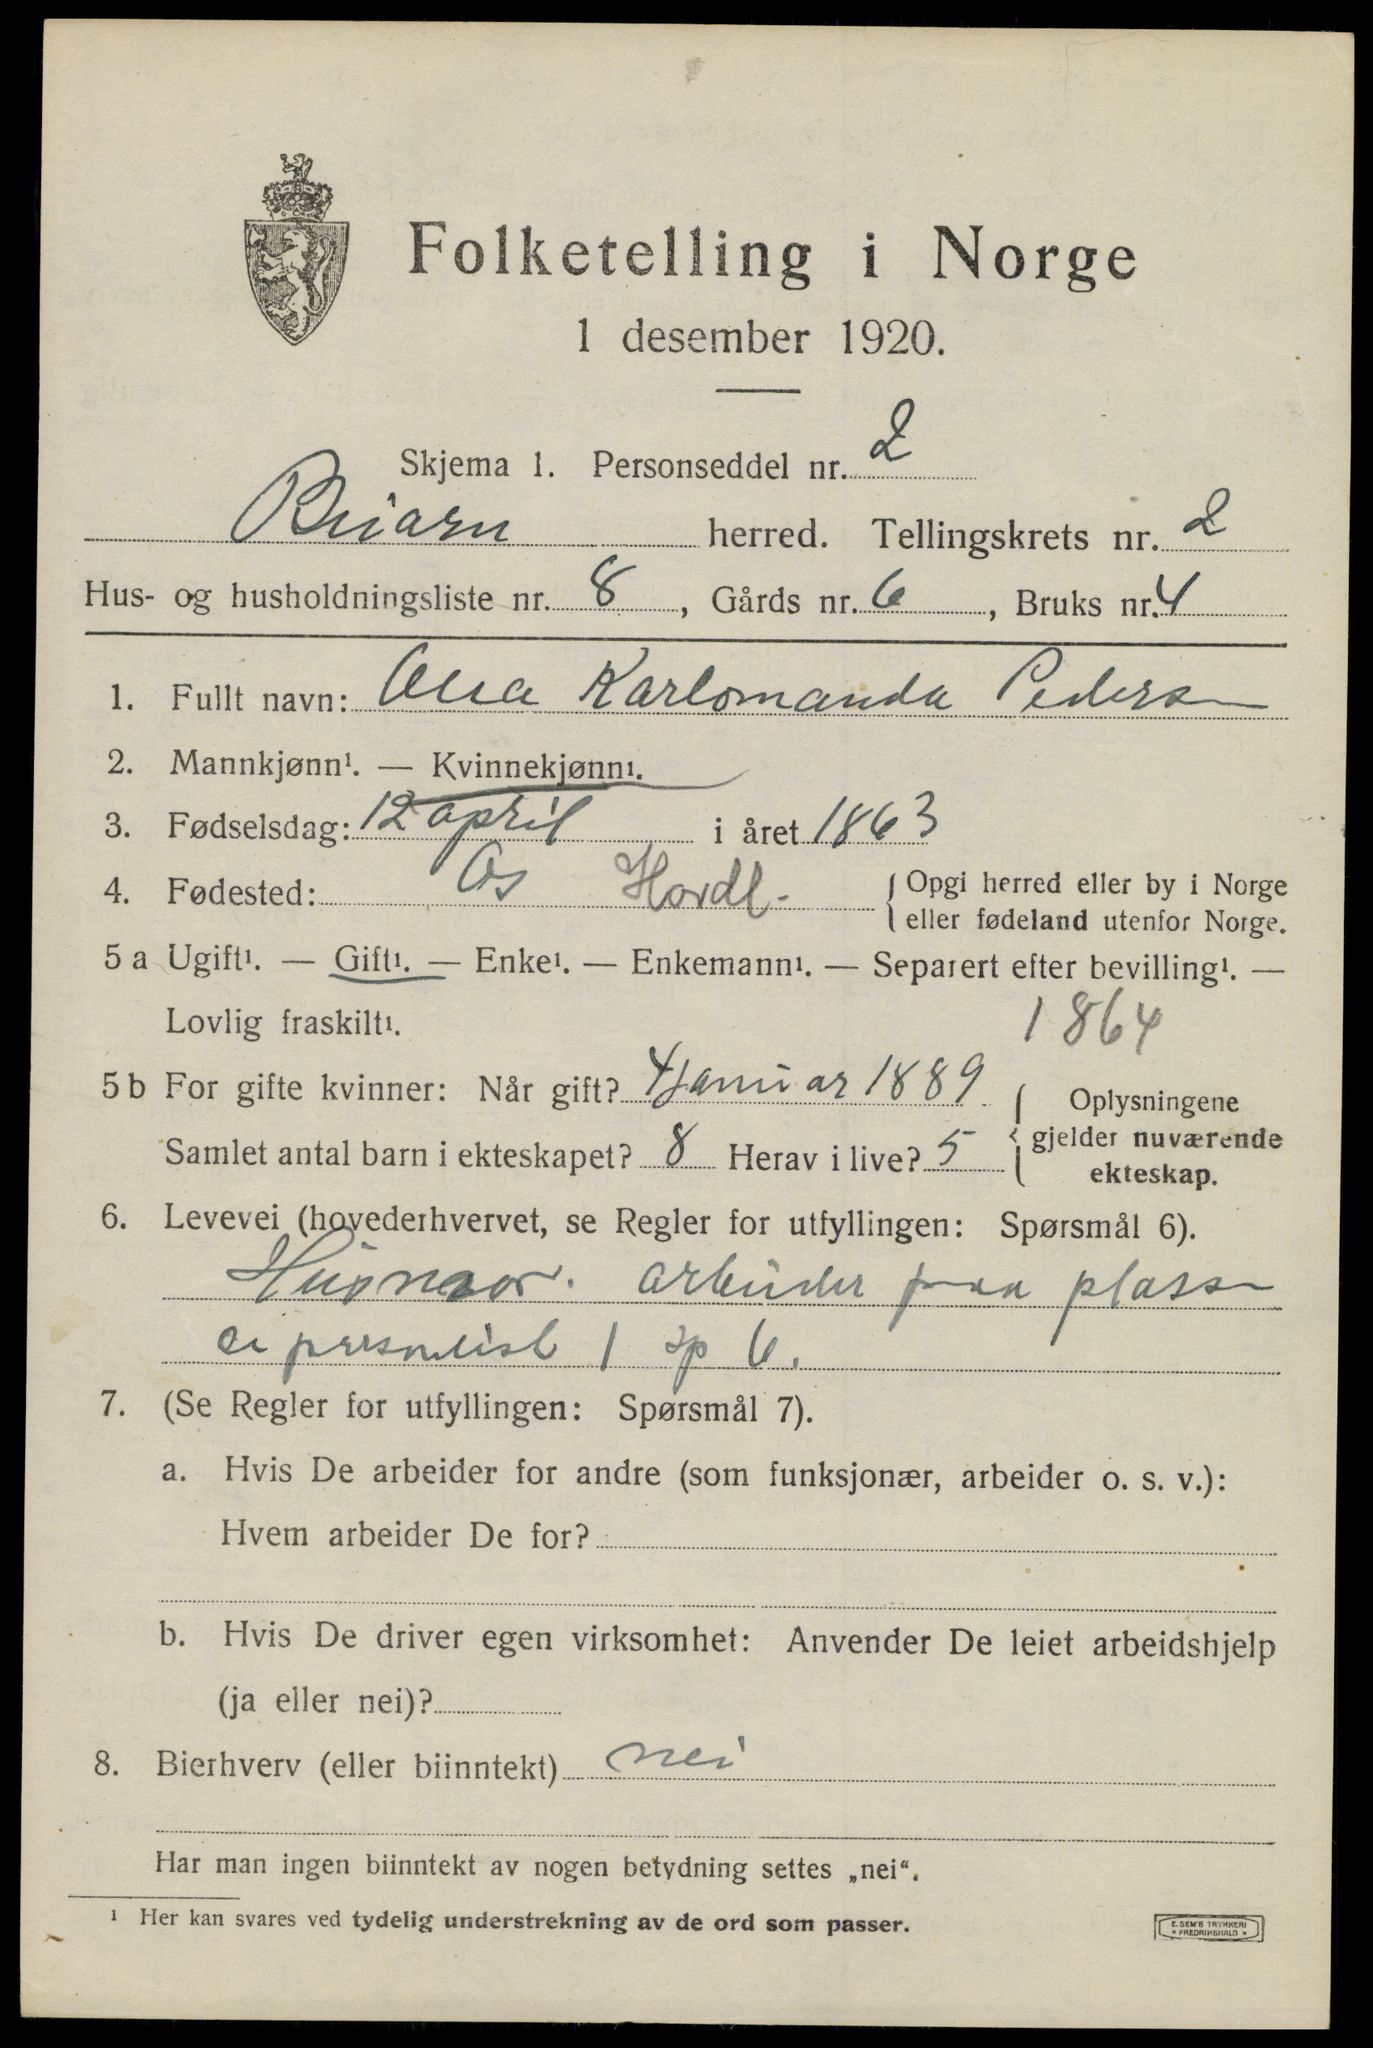 Folketelling i Norge
1 desember 1920.
Skjema 1. Personseddel nr. 2
Beiarn herred. Tellingskrets nr. 2
Hus- og husholdningsliste nr. 8, Gårds nr. 6, Bruks nr. 4
1. Fullt navn: Karlomanda Pedersen
2. Mannkjønn¹. — Kvinnekjønn¹.
3. Fødselsdag: 12 april i året 1863
4. Fødested: Os Hordl- { Opgi herred eller by i Norge
eller fødeland utenfor Norge.
5 a Ugift¹. — Gift¹. — Enke¹. — Enkemann¹. — Separert efter bevilling¹. —
Lovlig fraskilt¹. 1864
5 b For gifte kvinner: Når gift? 4 Januar 1889 { Oplysningene
Samlet antal barn i ekteskapet? 8 Herav i live? 5 gjelder nuværende
ekteskap.
6. Levevei (hovederhvervet, se Regler for utfyllingen: Spørsmål 6).
Husmor. arbeider paa plassen
1 sp 6.
7. (Se Regler for utfyllingen: Spørsmål 7).
a. Hvis De arbeider for andre (som funksjonær, arbeider o. s. v.):
Hvem arbeider De for?
b. Hvis De driver egen virksomhet: Anvender De leiet arbeidshjelp
(ja eller nei)?
8. Bierhverv (eller biinntekt) nei
Har man ingen biinntekt av nogen betydning settes „nei“.
¹ Her kan svares ved tydelig understrekning av de ord som passer.
E. SEM'S TRYKKERI
* FREDRIKSHALD *